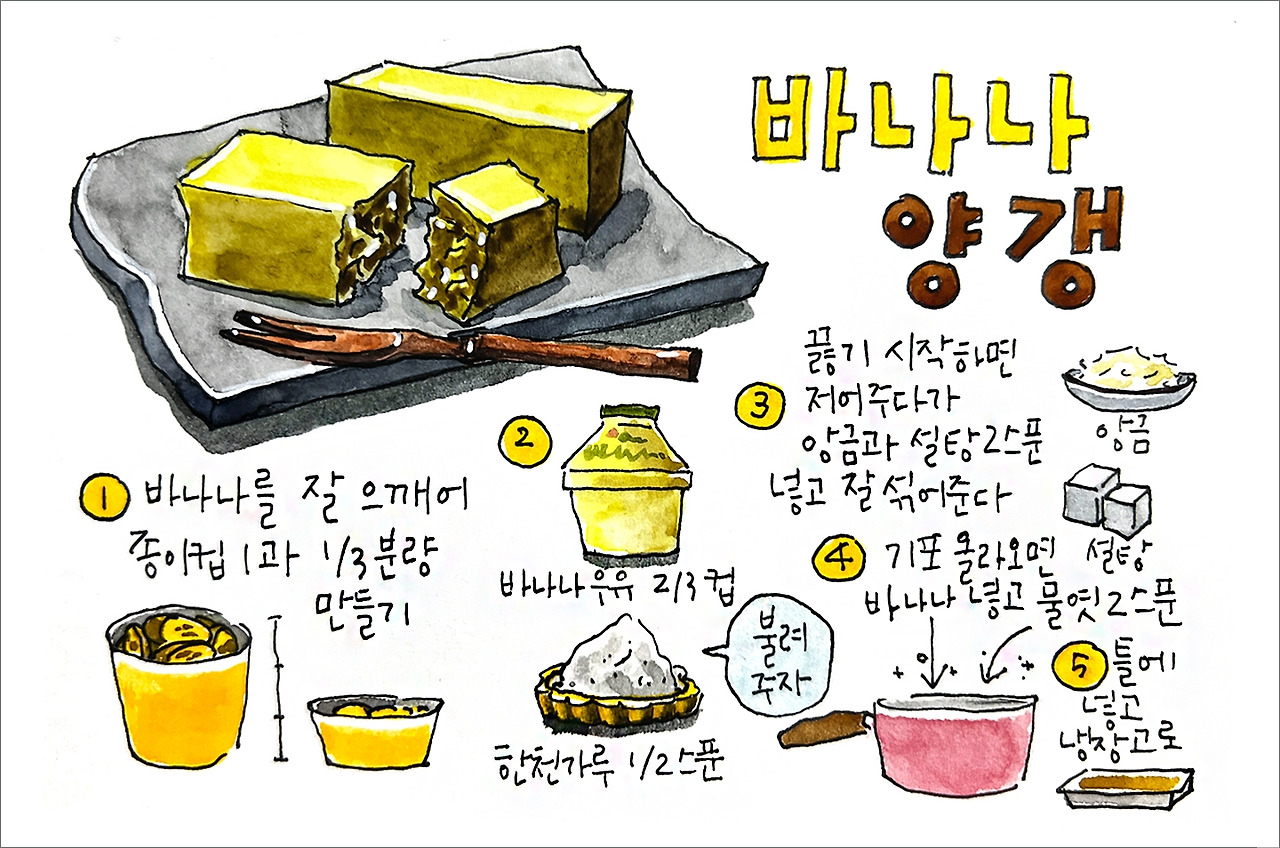 바나나
양갱
① 바나나를 잘 으깨어
종이컵 1과 1/3분량
만들기
②
바나나우유 2/3컵
불려
주자
한천가루 1/2스푼
끓기 시작하면
③ 저어주다가
앙금과 설탕2스푼
넣고 잘 섞어준다
앙금
설탕
④ 기포 올라오면
바나나 넣고 물엿2스푼
⑤ 틀에
넣고
냉장고로